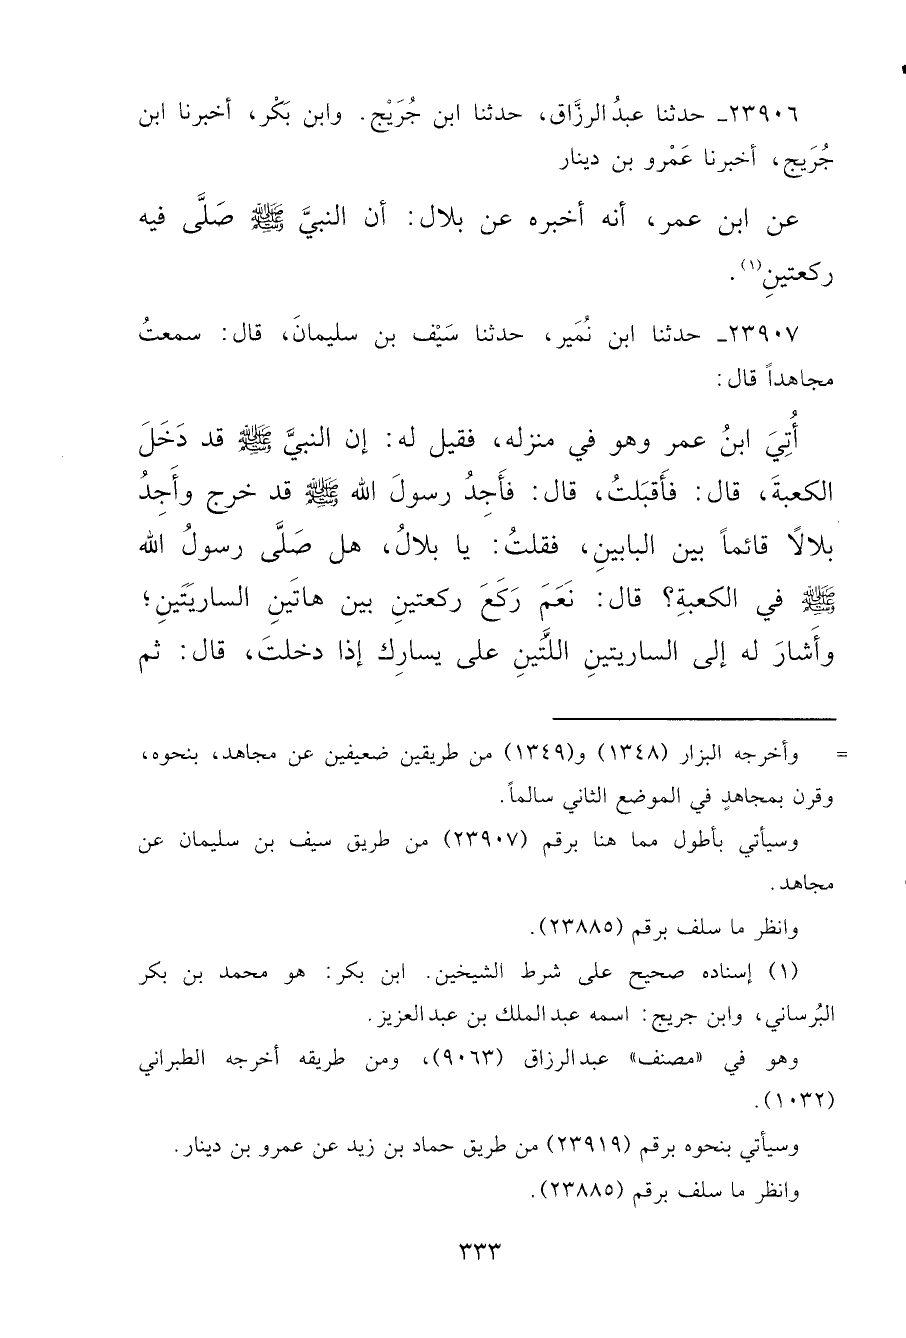 ٢٣٩٠٦ـ حدثنا عبدُ الرزَّاق، حدثنا ابن جُرَيْج. وابن بَكْر، أخبرنا ابن
جُرَيج، أخبرنا عَمْرو بن دينار
عن ابن عمر، أنه أخبره عن بلال: أن النبيَّ ﷺ صَلَّى فيه
ركعتينِ(١).
٢٣٩٠٧ـ حدثنا ابن نُمَير، حدثنا سَيْف بن سليمانَ، قال: سمعتُ
مجاهداً قال:
أُتِيَ ابنُ عمر وهو في منزله، فقيل له: إن النبيَّ ﷺ قد دَخَلَ
الكعبةَ، قال: فأَقبَلتُ، قال: فأَجِدُ رسولَ الله ﷺ قد خرج وأَجِدُ
بلالًا قائماً بين البابينِ، فقلتُ: يا بلالُ، هل صَلَّى رسولُ الله
ﷺ في الكعبةِ؟ قال: نَعَمَ رَكَعَ ركعتينِ بين هاتَينِ الساريَتَينِ؛
وأَشارَ له إلى الساريتينِ اللَّتَينِ على يسارِك إذا دخلتَ، قال: ثم
= وأخرجه البزار (١٣٤٨) و(١٣٤٩) من طريقين ضعيفين عن مجاهد، بنحوه،
وقرن بمجاهدٍ في الموضع الثاني سالماً.
وسيأتي بأطول مما هنا برقم (٢٣٩٠٧) من طريق سيف بن سليمان عن
مجاهد.
وانظر ما سلف برقم (٢٣٨٨٥).
(١) إسناده صحيح على شرط الشيخين. ابن بكر: هو محمد بن بكر
البُرساني، وابن جريج: اسمه عبد الملك بن عبد العزيز.
وهو في «مصنف» عبد الرزاق (٩٠٦٣)، ومن طريقه أخرجه الطبراني
(١٠٣٢).
وسيأتي بنحوه برقم (٢٣٩١٩) من طريق حماد بن زيد عن عمرو بن دينار.
وانظر ما سلف برقم (٢٣٨٨٥).
٣٣٣